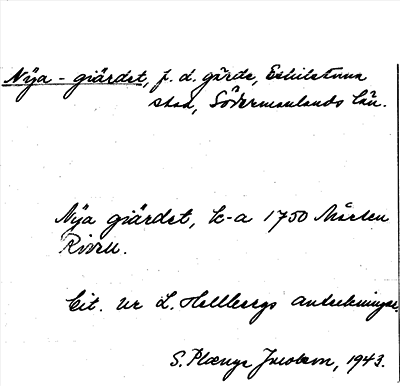 Nÿa - giärdet, f. d. gärde, Eskilstuna
stad, Södermanlands län.
Nÿa giärdet, k-a 1750 Mårten
Rivell.
Cit. ur L. Hellbergs anteckningar.
S. Plænge Jacobson, 1943.